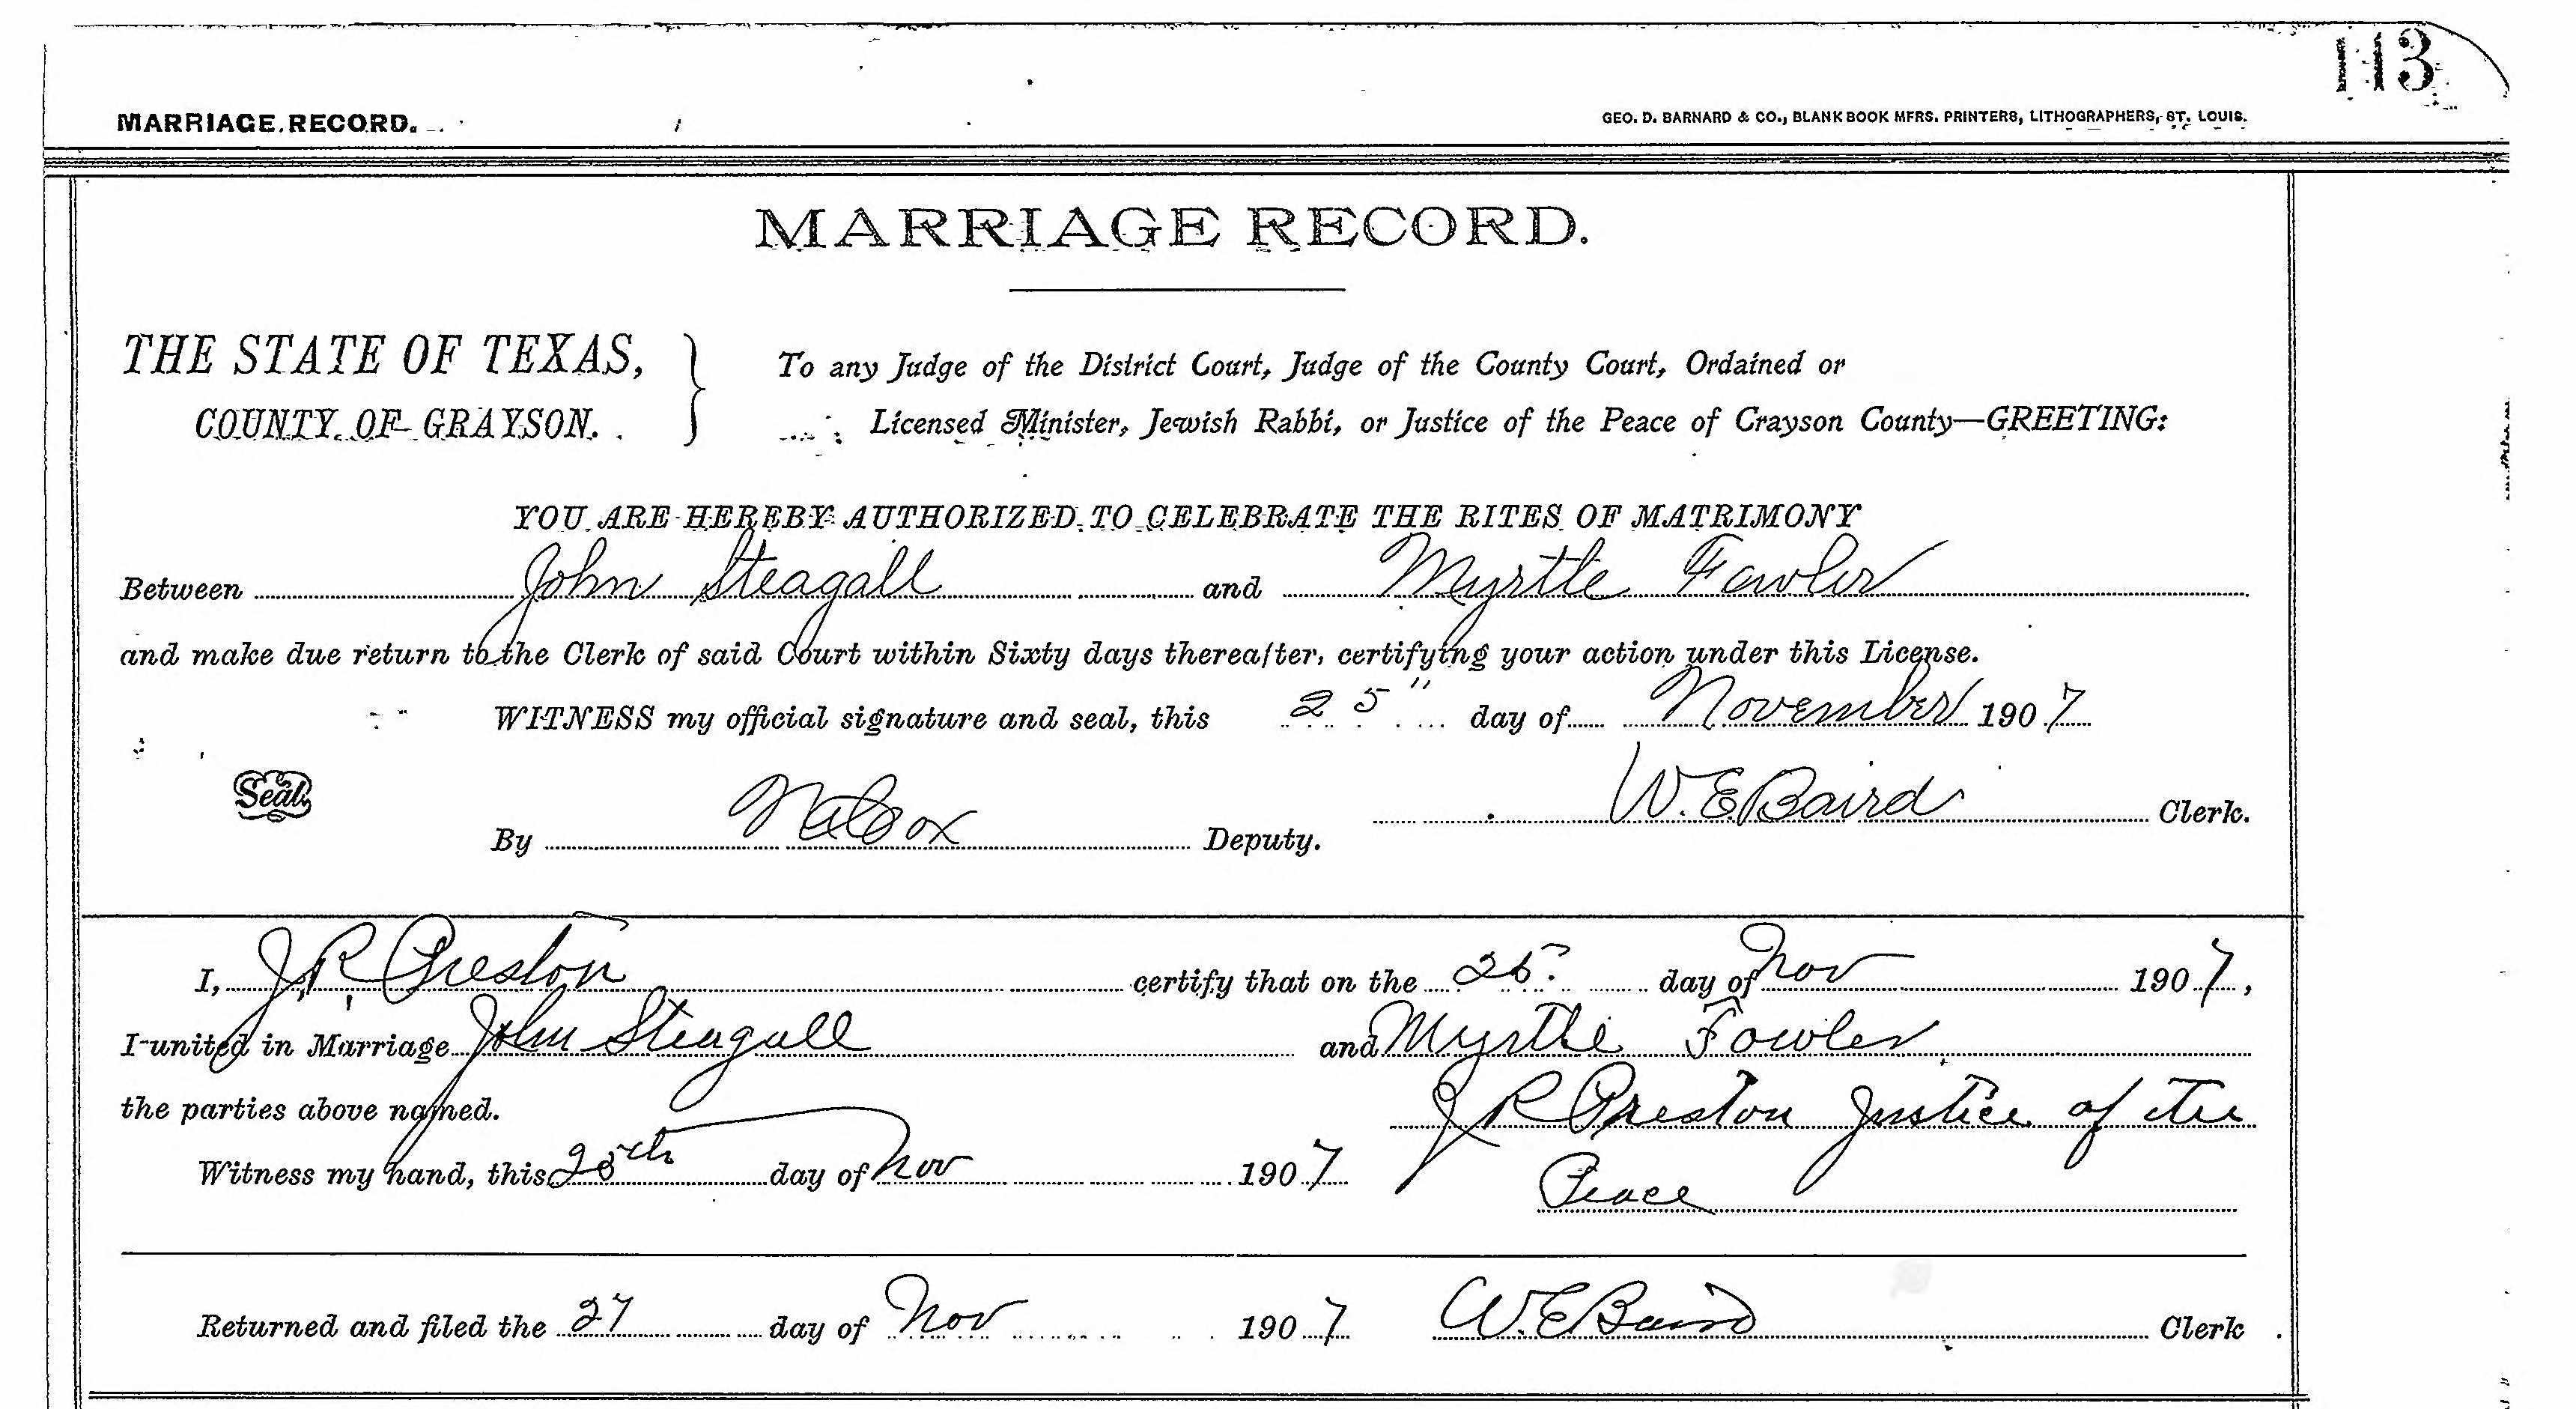 113
MARRIAGE RECORD. GEO. D. BARNARD & CO., BLANK BOOK MFRS. PRINTERS, LITHOGRAPHERS, ST. LOUIS.
MARRIAGE RECORD.
THE STATE OF TEXAS, To any Judge of the District Court, Judge of the County Court, Ordained or
COUNTY OF GRAYSON. Licensed Minister, Jewish Rabbi, or Justice of the Peace of Crayson County—GREETING:
YOU ARE HEREBY AUTHORIZED TO CELEBRATE THE RITES OF MATRIMONY
Between John Steagall and Myrtle Fowler
and make due return to the Clerk of said Court within Sixty days thereafter, certifying your action under this License.
WITNESS my official signature and seal, this 25" day of November 1907
Seal W. E. Baird Clerk.
By Cox Deputy.
I, J. R. Preston certify that on the 25 day of Nov 1907,
I united in Marriage John Steagall and Myrtle Fowler
the parties above named. J R Preston Justice of the
Witness my hand, this 25th day of Nov 1907 Peace
Returned and filed the 27 day of Nov 1907 W. E. Baird Clerk.